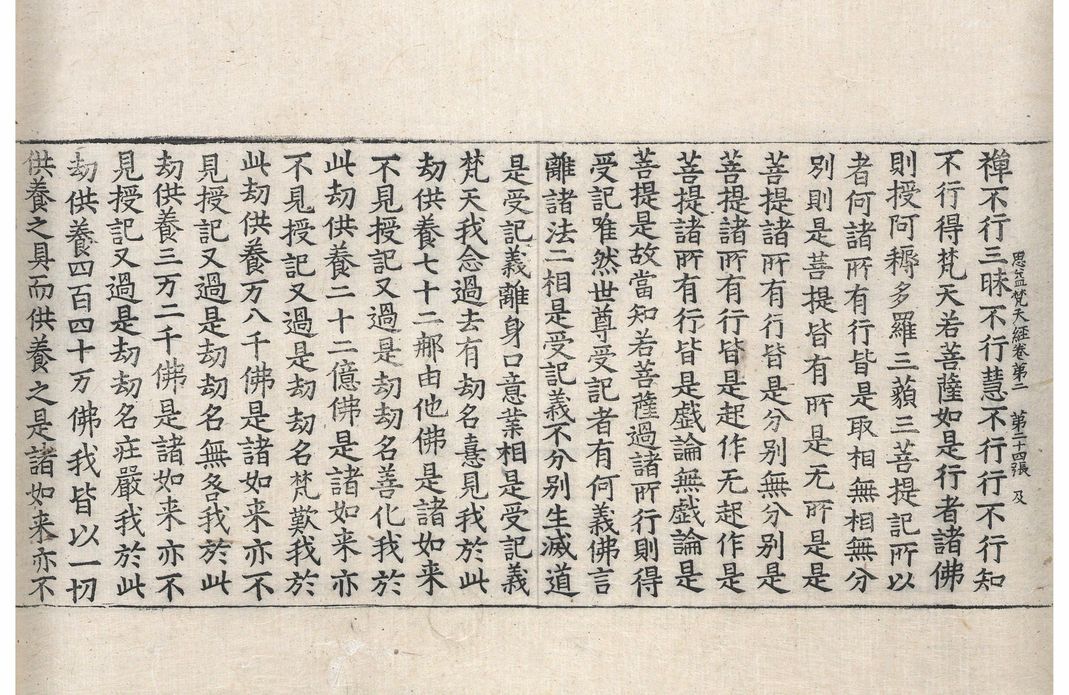 禪不行三昧不行慧不行行不行知
思益梵天經卷第二　第二十四張　及
不行得梵天若菩薩如是行者諸佛
則授阿耨多羅三藐三菩提記所以
者何諸所有行皆是取相無相無分
別則是菩提皆有所是无所是是
菩提諸所有行皆是分別無分別是
菩提諸所有行皆是起作无起作是
菩提諸所有行皆是戲論無戲論是
菩提是故當知若菩薩過諸所行則得
受記唯然世尊受記者有何義佛言
離諸法二相是受記義不分別生滅道
是受記義離身口意業相是受記義
梵天我念過去有劫名憙見我於此
劫供養七十二那由他佛是諸如来
不見授記又過是劫劫名善化我於
此劫供養二十二億佛是諸如来亦
不見授記又過是劫劫名梵歎我於
此劫供養万八千佛是諸如来亦不
見授記又過是劫劫名無咎我於此
劫供養三万二千佛是諸如来亦不
見授記又過是劫劫名莊嚴我於此
劫供養四百四十万佛我皆以一切
供養之具而供養之是諸如来亦不